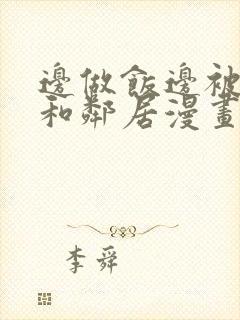 邊做飯邊被
和鄰居漫畫
李舜